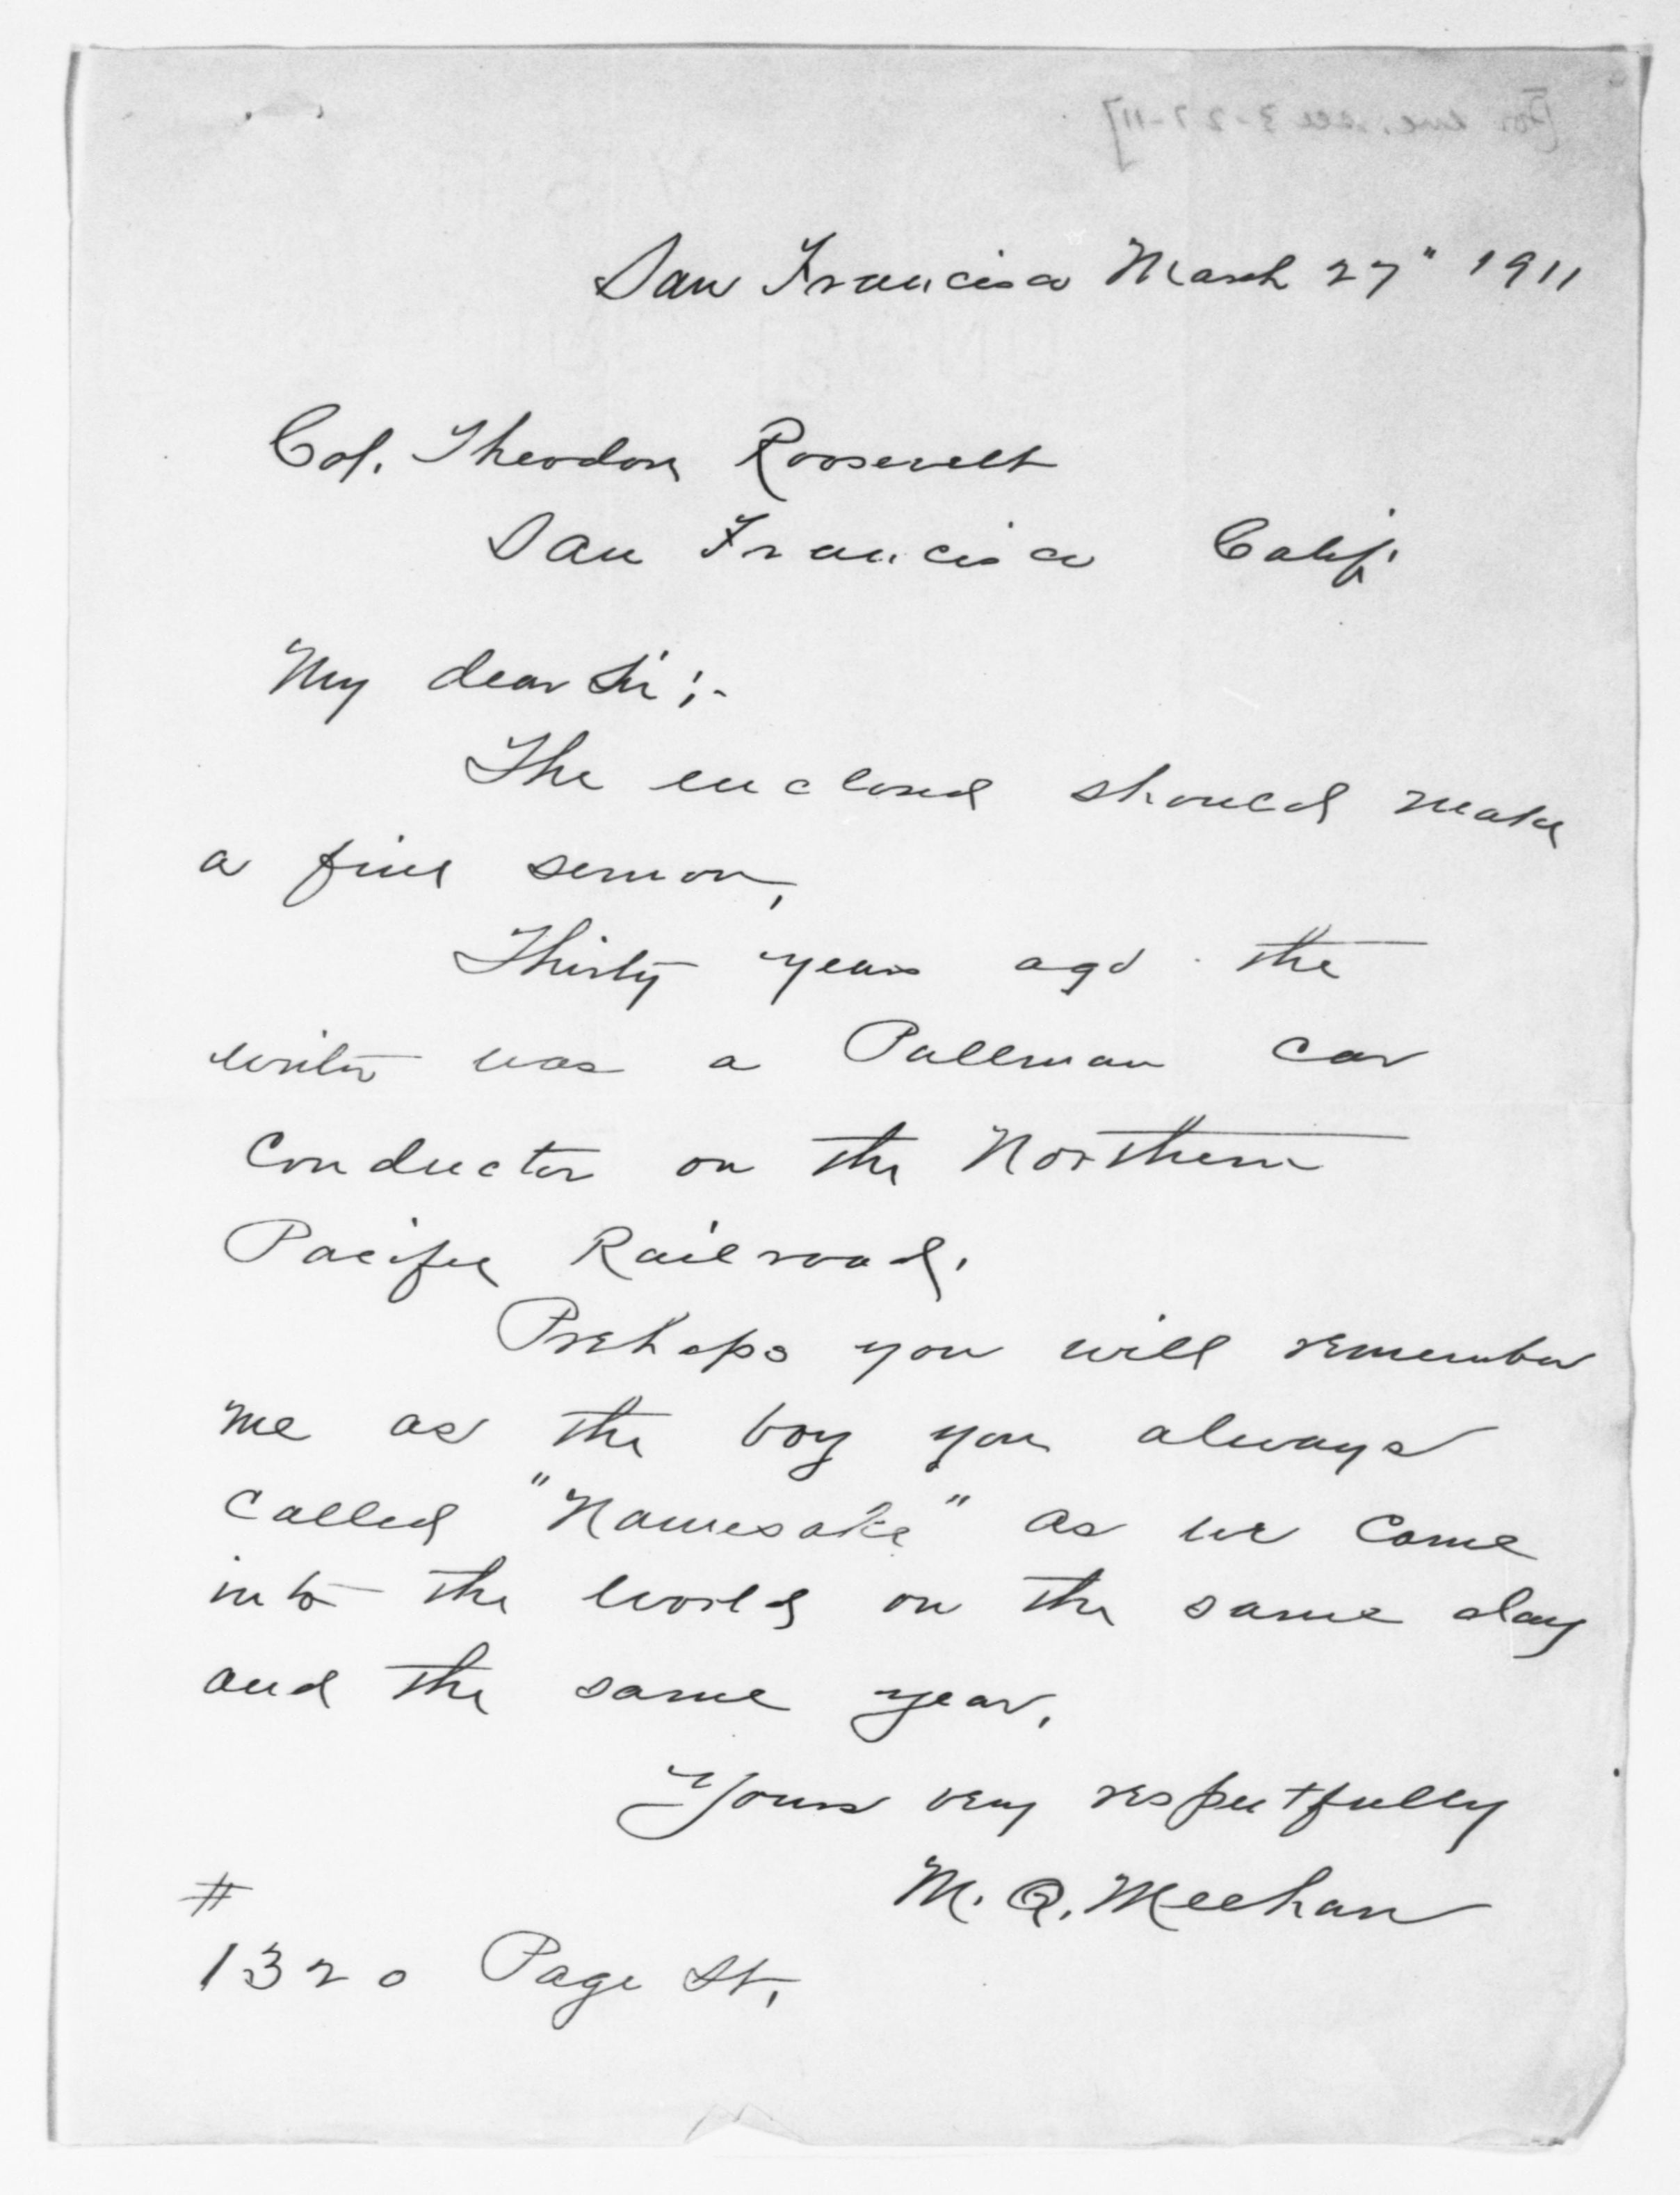 [For enc. see 3-27-11]
San Francisco March 27" 1911
Col. Theodore Roosevelt
San Francisco Calif.
My dear Sir;-
The enclosed should make
a fine sermon,
Thirty years ago the
writer was a Pullman car
Conductor on the Northern
Pacific Railroad.
Prehaps you will remember
me as the boy you always
called "Namesake" as we come
into the world on the same day
and the same year.
Yours very respectfully
M. Q. Meehan
#
1320 Page St,